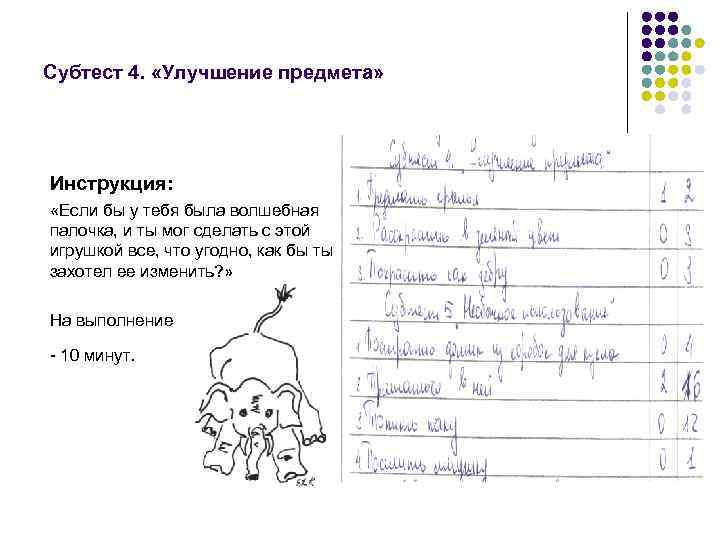 Субтест 4. «Улучшение предмета»
Инструкция:
«Если бы у тебя была волшебная
палочка, и ты мог сделать с этой
игрушкой все, что угодно, как бы ты
захотел ее изменить?»
На выполнение
- 10 минут.
Субтест 4. предмета"
1. 1 2
2. Раскрасить в зелёный цвет 0 3
3. Покрасить как зебру 0 3
Субтест 5 использование"
1. Построить домик из коробок для кукол 0 4
2. в ней 2 16
3. 0 12
4. 0 1